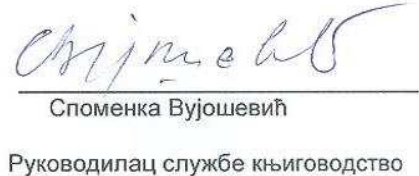 Споменка Вујошевић
Руководилац службе књиговодство